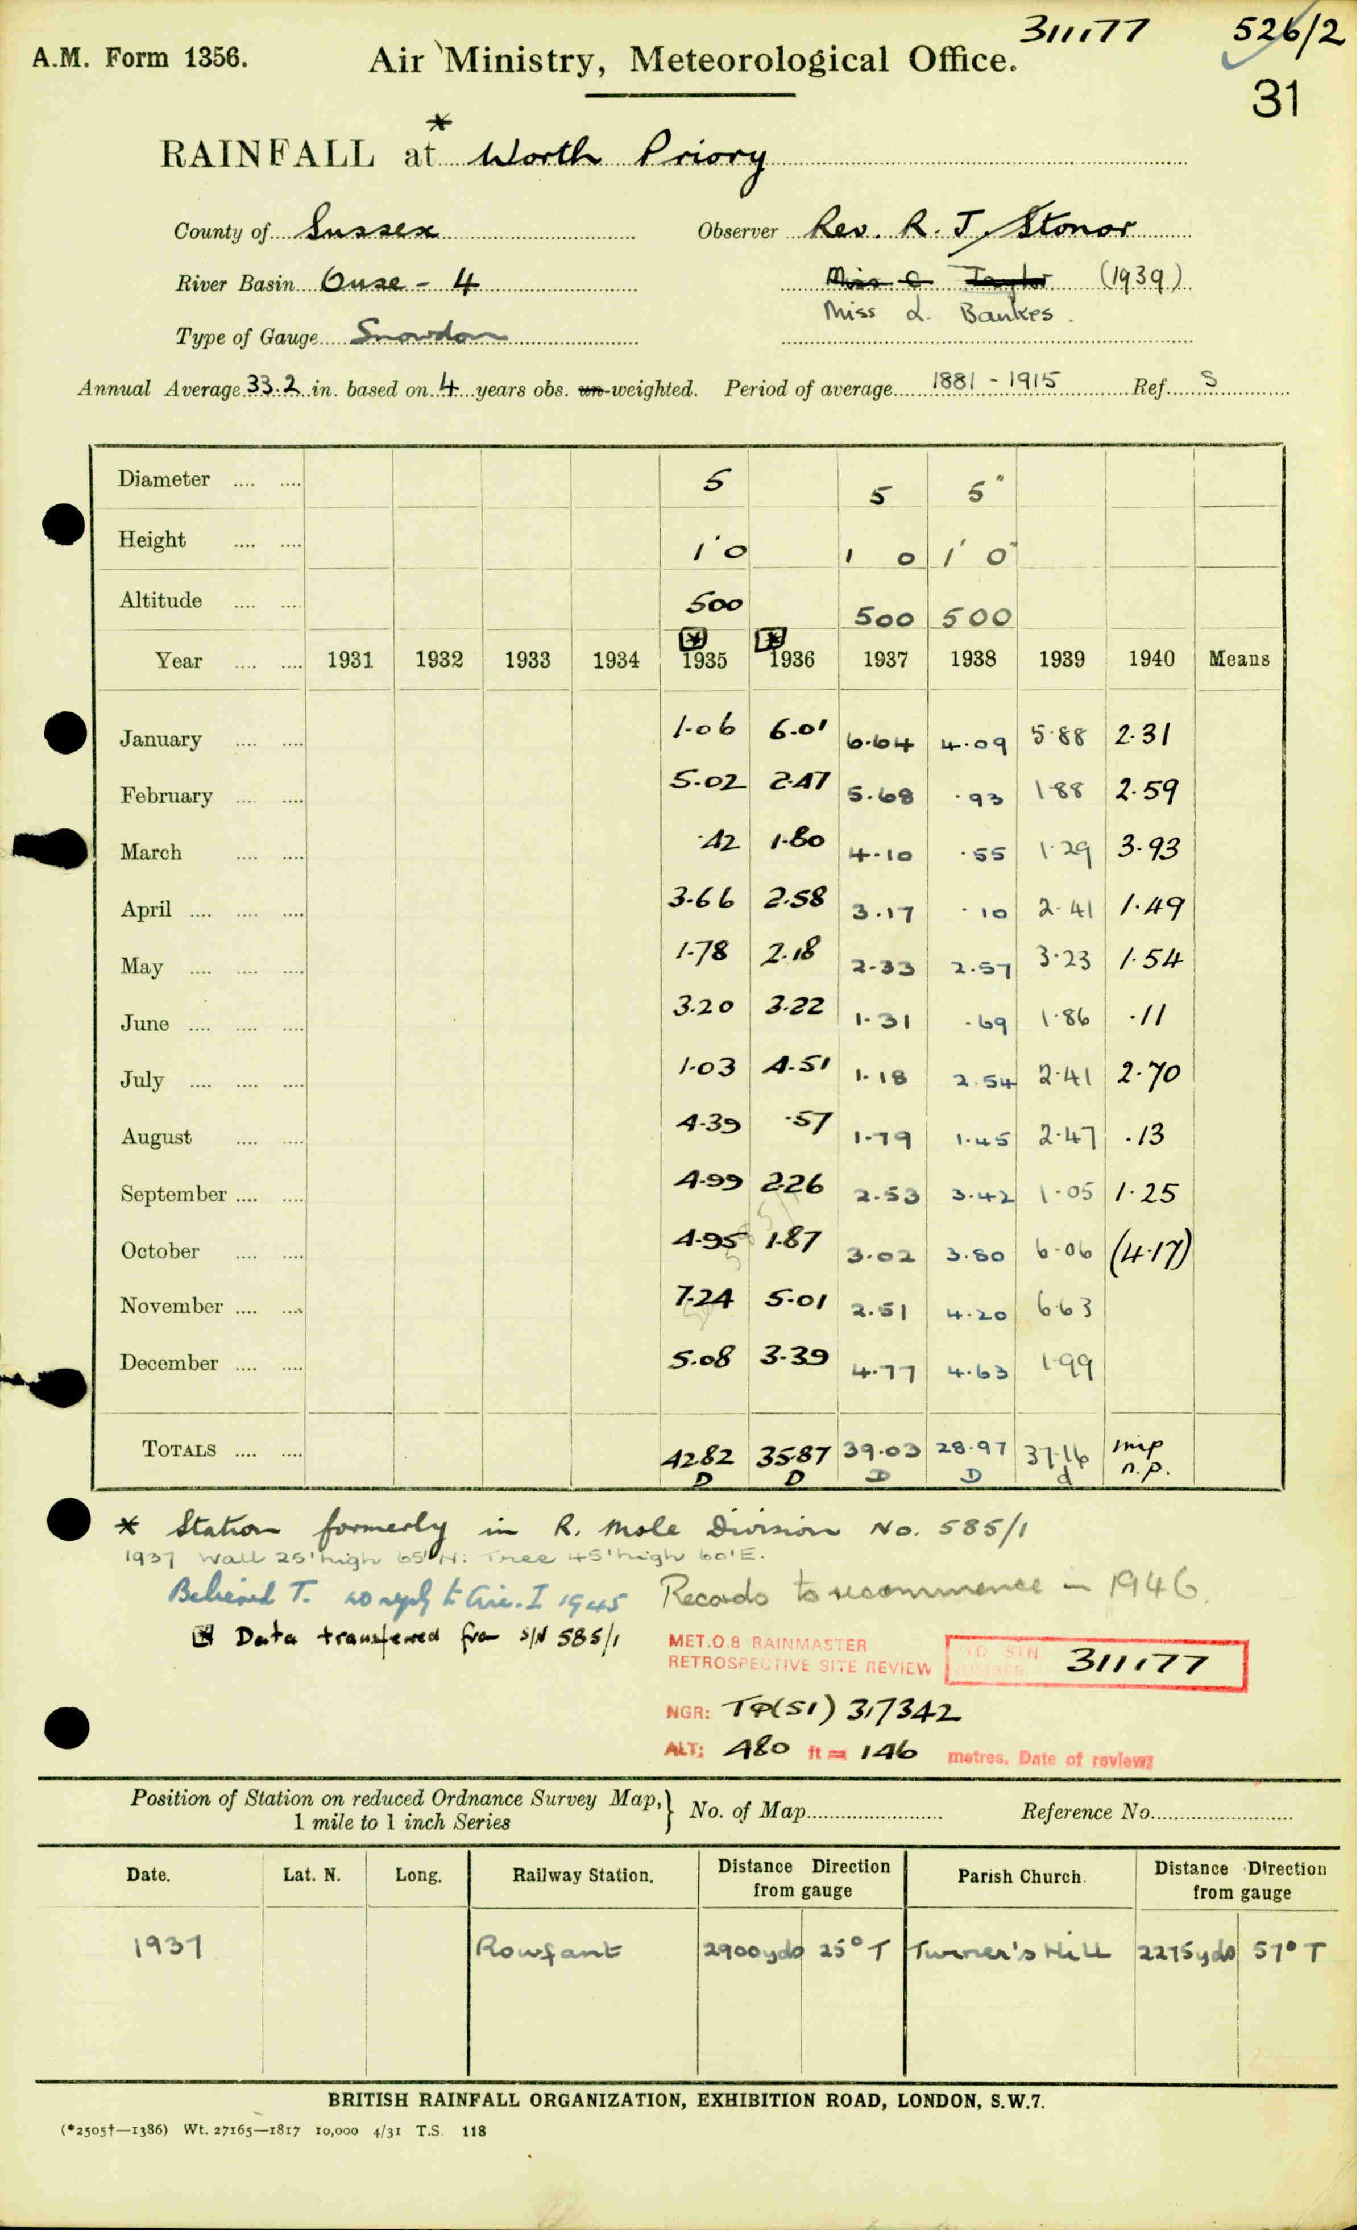 311177 526/2
A.M. Form 1356. Air Ministry, Meteorological Office.
31
*
RAINFALL at Worth Priory
County of Sussex Observer Rev. R. J. Stonor
River Basin Ouse - 4 Miss C Taylor (1939)
Miss L. Bankes.
Type of Gauge Snowdon
Annual Average 33.2 in. based on 4 years obs. un-weighted. Period of average 1881 - 1915 Ref. S
Diameter 5 5 5"
Height 1'0 1 0 1' 0"
Altitude 500 500 500
* *
Year 1931 1932 1933 1934 1935 1936 1937 1938 1939 1940 Means
January 1.06 6.01 6.64 4.09 5.88 2.31
February 5.02 2.47 5.68 .93 1.88 2.59
March .42 1.80 4.10 .55 1.29 3.93
April 3.66 2.58 3.17 .10 2.41 1.49
May 1.78 2.18 2.33 2.57 3.23 1.54
June 3.20 3.22 1.31 .69 1.86 .11
July 1.03 4.51 1.18 2.54 2.41 2.70
August 4.39 .57 1.79 1.45 2.47 .13
September 4.99 2.26 2.53 3.42 1.05 1.25
October 4.95 1.87 3.02 3.80 6.06 (4.17)
November 7.24 5.01 2.51 4.20 6.63
December 5.08 3.39 4.77 4.63 1.99
TOTALS 42.82 35.87 39.03 28.97 37.16 imp
D D D D d n.p.
* Station formerly in R. Mole Division No. 585/1
1937 Wall 25' high 65' N: Tree 45' high 60' E.
Believed T. no reply to Circ. I 1945 Records to recommence in 1946.
* Data transferred from S/N 585/1
MET.O.8 RAINMASTER
RETROSPECTIVE SITE REVIEW STN 311177
NGR: TQ(51) 317342
ALT: 480 ft = 146 metres. Date of review
Position of Station on reduced Ordnance Survey Map, } No. of Map Reference No.
1 mile to 1 inch Series
Date. Lat. N. Long. Railway Station. Distance Direction from gauge Parish Church. Distance Direction from gauge
1937 Rowfant 2900 yds 25° T Turner's Hill 2275 yds 57° T
BRITISH RAINFALL ORGANIZATION, EXHIBITION ROAD, LONDON, S.W.7.
(*2505†—1386) Wt. 27165—1817 10,000 4/31 T.S. 118